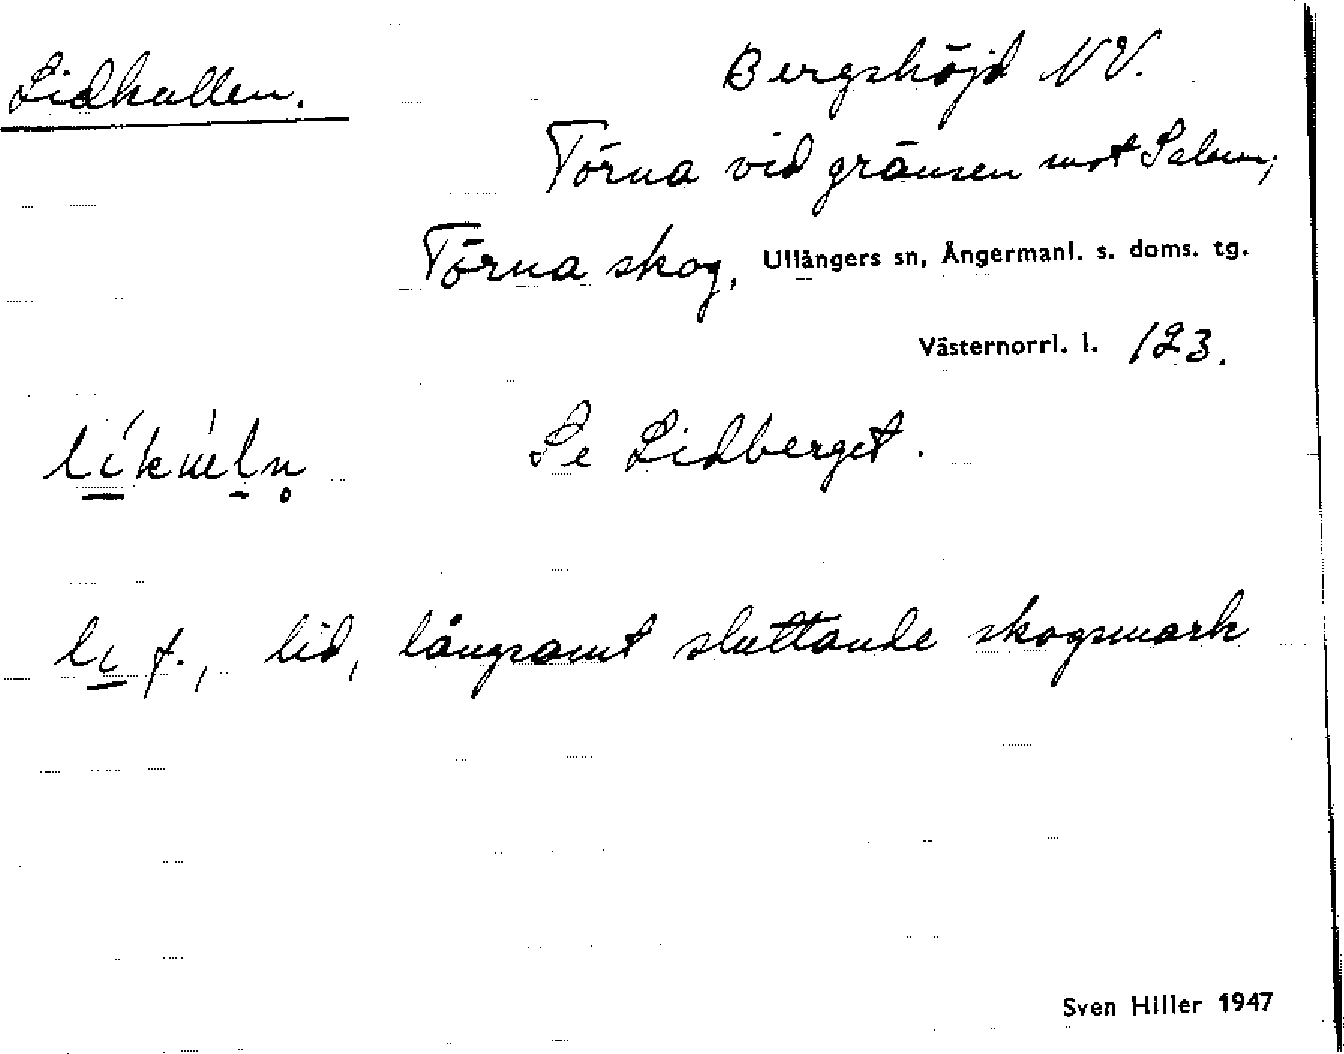 Lidkullen.
Bergshöjd NV.
Törna vid gränsen mot Salum,
Törna skog, Ullångers sn, Ångermanl. s. doms. tg.
Västernorrl. l. 123.
Se Lidberget.
li f., lid, långsamt sluttande skogsmark
Sven Hiller 1947